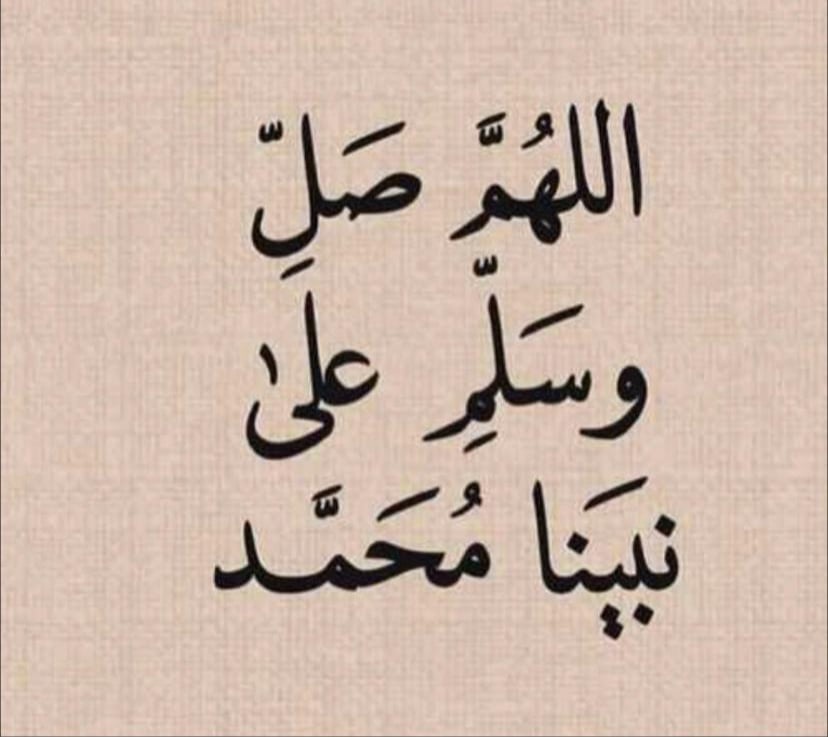 اللهُمَّ صَلِّ
وسَلِّمِ على
نبيَنا مُحَمَّد